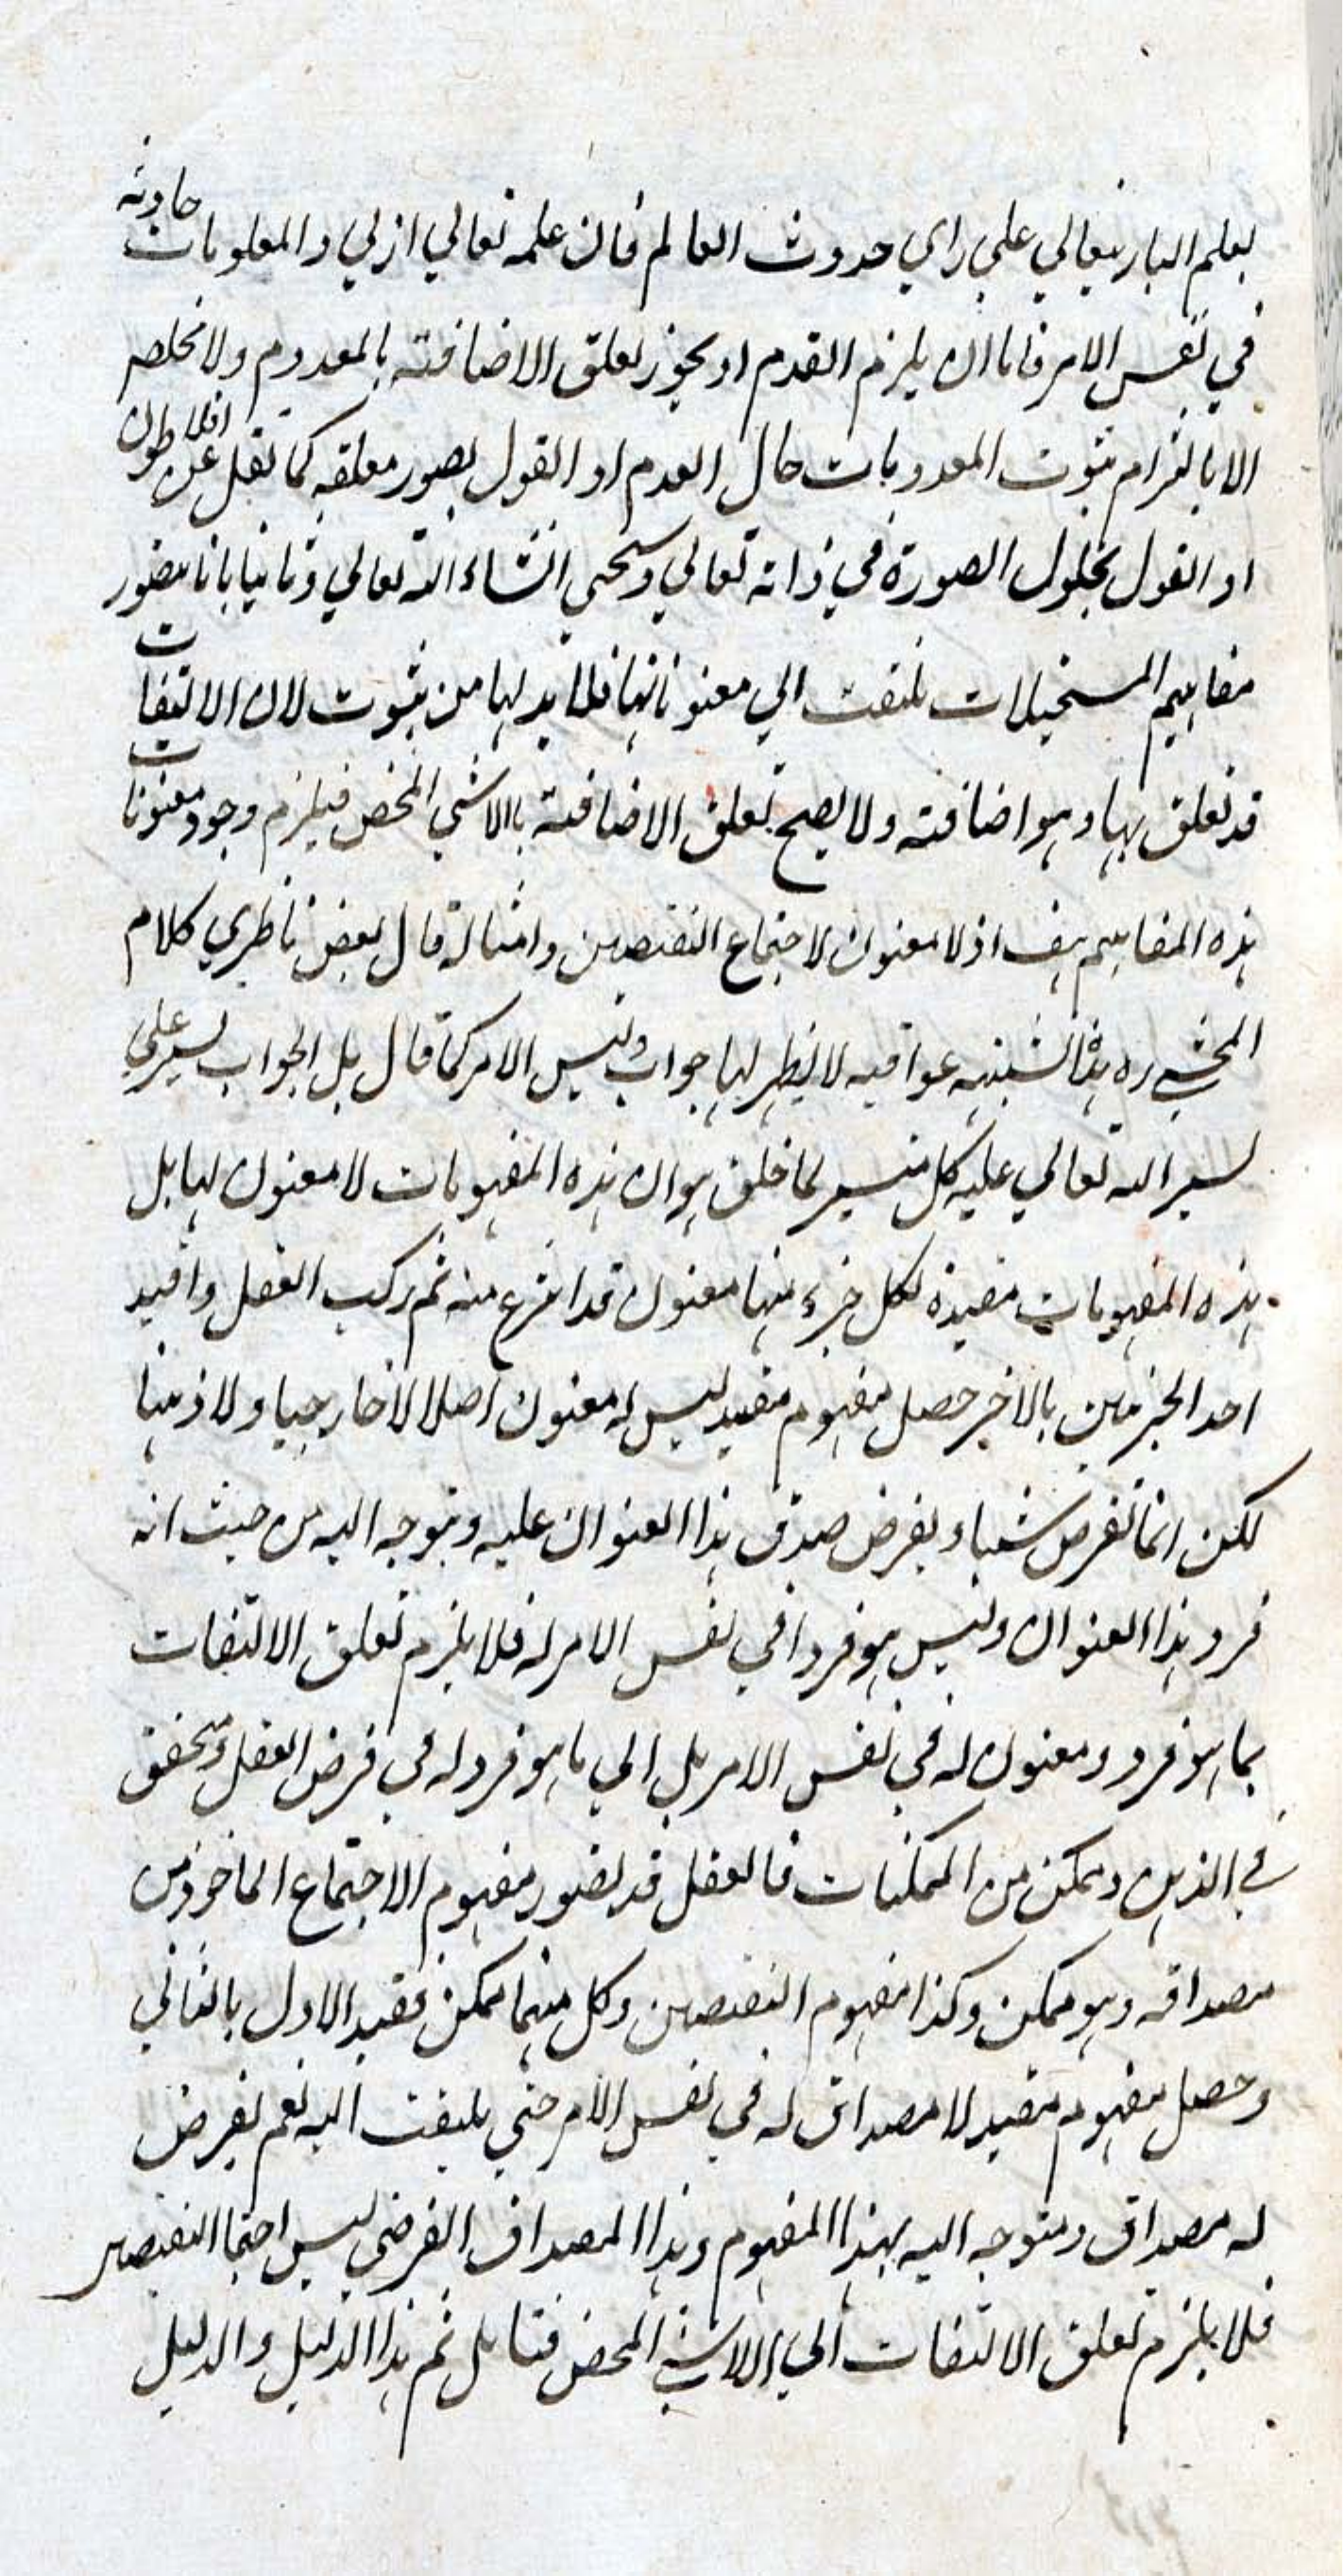 بعلم الباري تعالي علي راي حدوث العالم فان علمه تعالي ازلي والمعلومات حادثه
في نفس الامر فاما ان يلزم القدم او يجوز تعلق الاضافته بالمعدوم ولا مخلص
الا بالتزام ثبوت المعدومات حال العدم او القول بصور معلقه كما نقل عن افلاطون
او القول بحلول الصورة في ذاته تعالي وسيجي انشاء الله تعالي وثانيا بانا نتصور
مفاهيم المستحيلات نلتفت الي معنوناتها فلا بد لها من ثبوت لان الالتفات
قد تعلق بها وهو اضافته ولا يصح تعلق الاضافته بالاشي المحض فيلزم وجود معنونات
هذه المفاهيم هف اذ لا معنون لاجتماع النقيضين وامثاله قال بعض ناظري كلام
المحشي ره هذا الشبهه عواقبه لا ينظر لها جواب وليس الامر كما قال بل الجواب يسير علي
يسير الله تعالي عليه كل ميسر لما خلق هو ان هذه المفهومات لا معنون لها بل
هذه المفهومات مقيدة لكل جزء منها معنون قد انتزع منه ثم ركب العقل وا قيد
احد الجزئين بالاخر حصل مفهوم مقيد ليس له معنون اصلا لا خارجيا ولا ذهنيا
لكن انما نفرض شيئا و نفرض صدق هذا العنوان عليه و نتوجه اليه من حيث انه
فرد هذا العنوان وليس هو فردا في نفس الامر له فلا يلزم تعلق الالتفات
بما هو فرد ومعنون له في نفس الامر بل الي ما هو فرد له في فرض العقل ومتحقق
في الذهن وممكن من الممكنات فالعقل قد تصور مفهوم الاجتماع الماخوذ من
مصداقه وهو ممكن وكذا مفهوم النقيضين وكل منهما ممكن فقيد الاول بالثاني
وحصل مفهوم مقيد لا مصداق له في نفس الامر حتي يلتفت اليه نعم نفرض
له مصداق و نتوجه اليه بهذا المفهوم وهذا المصداق الفرضي ليس اجتماع النقيضين
فلا يلزم تعلق الالتفات الي اللاشي المحض فتامل ثم هذا الدليل والدليل